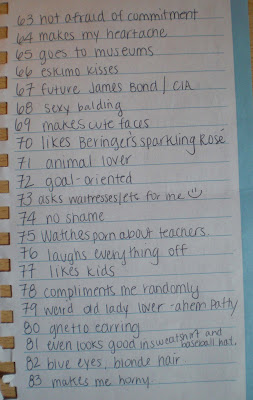 63 not afraid of commitment
64 makes my heartache
65 goes to museums
66 eskimo kisses
67 future James Bond / CIA
68 sexy balding
69 makes cute faces
70 likes Beringer's sparkling Rosé
71 animal lover
72 goal-oriented
73 asks waitresses/etc for me ☺
74 no shame
75 Watches porn about teachers.
76 laughs everything off
77 likes kids
78 compliments me randomly
79 weird old lady lover - ahem Patty
80 ghetto earring
81 even looks good in sweatshirt and baseball hat.
82 blue eyes, blonde hair
83 makes me horny